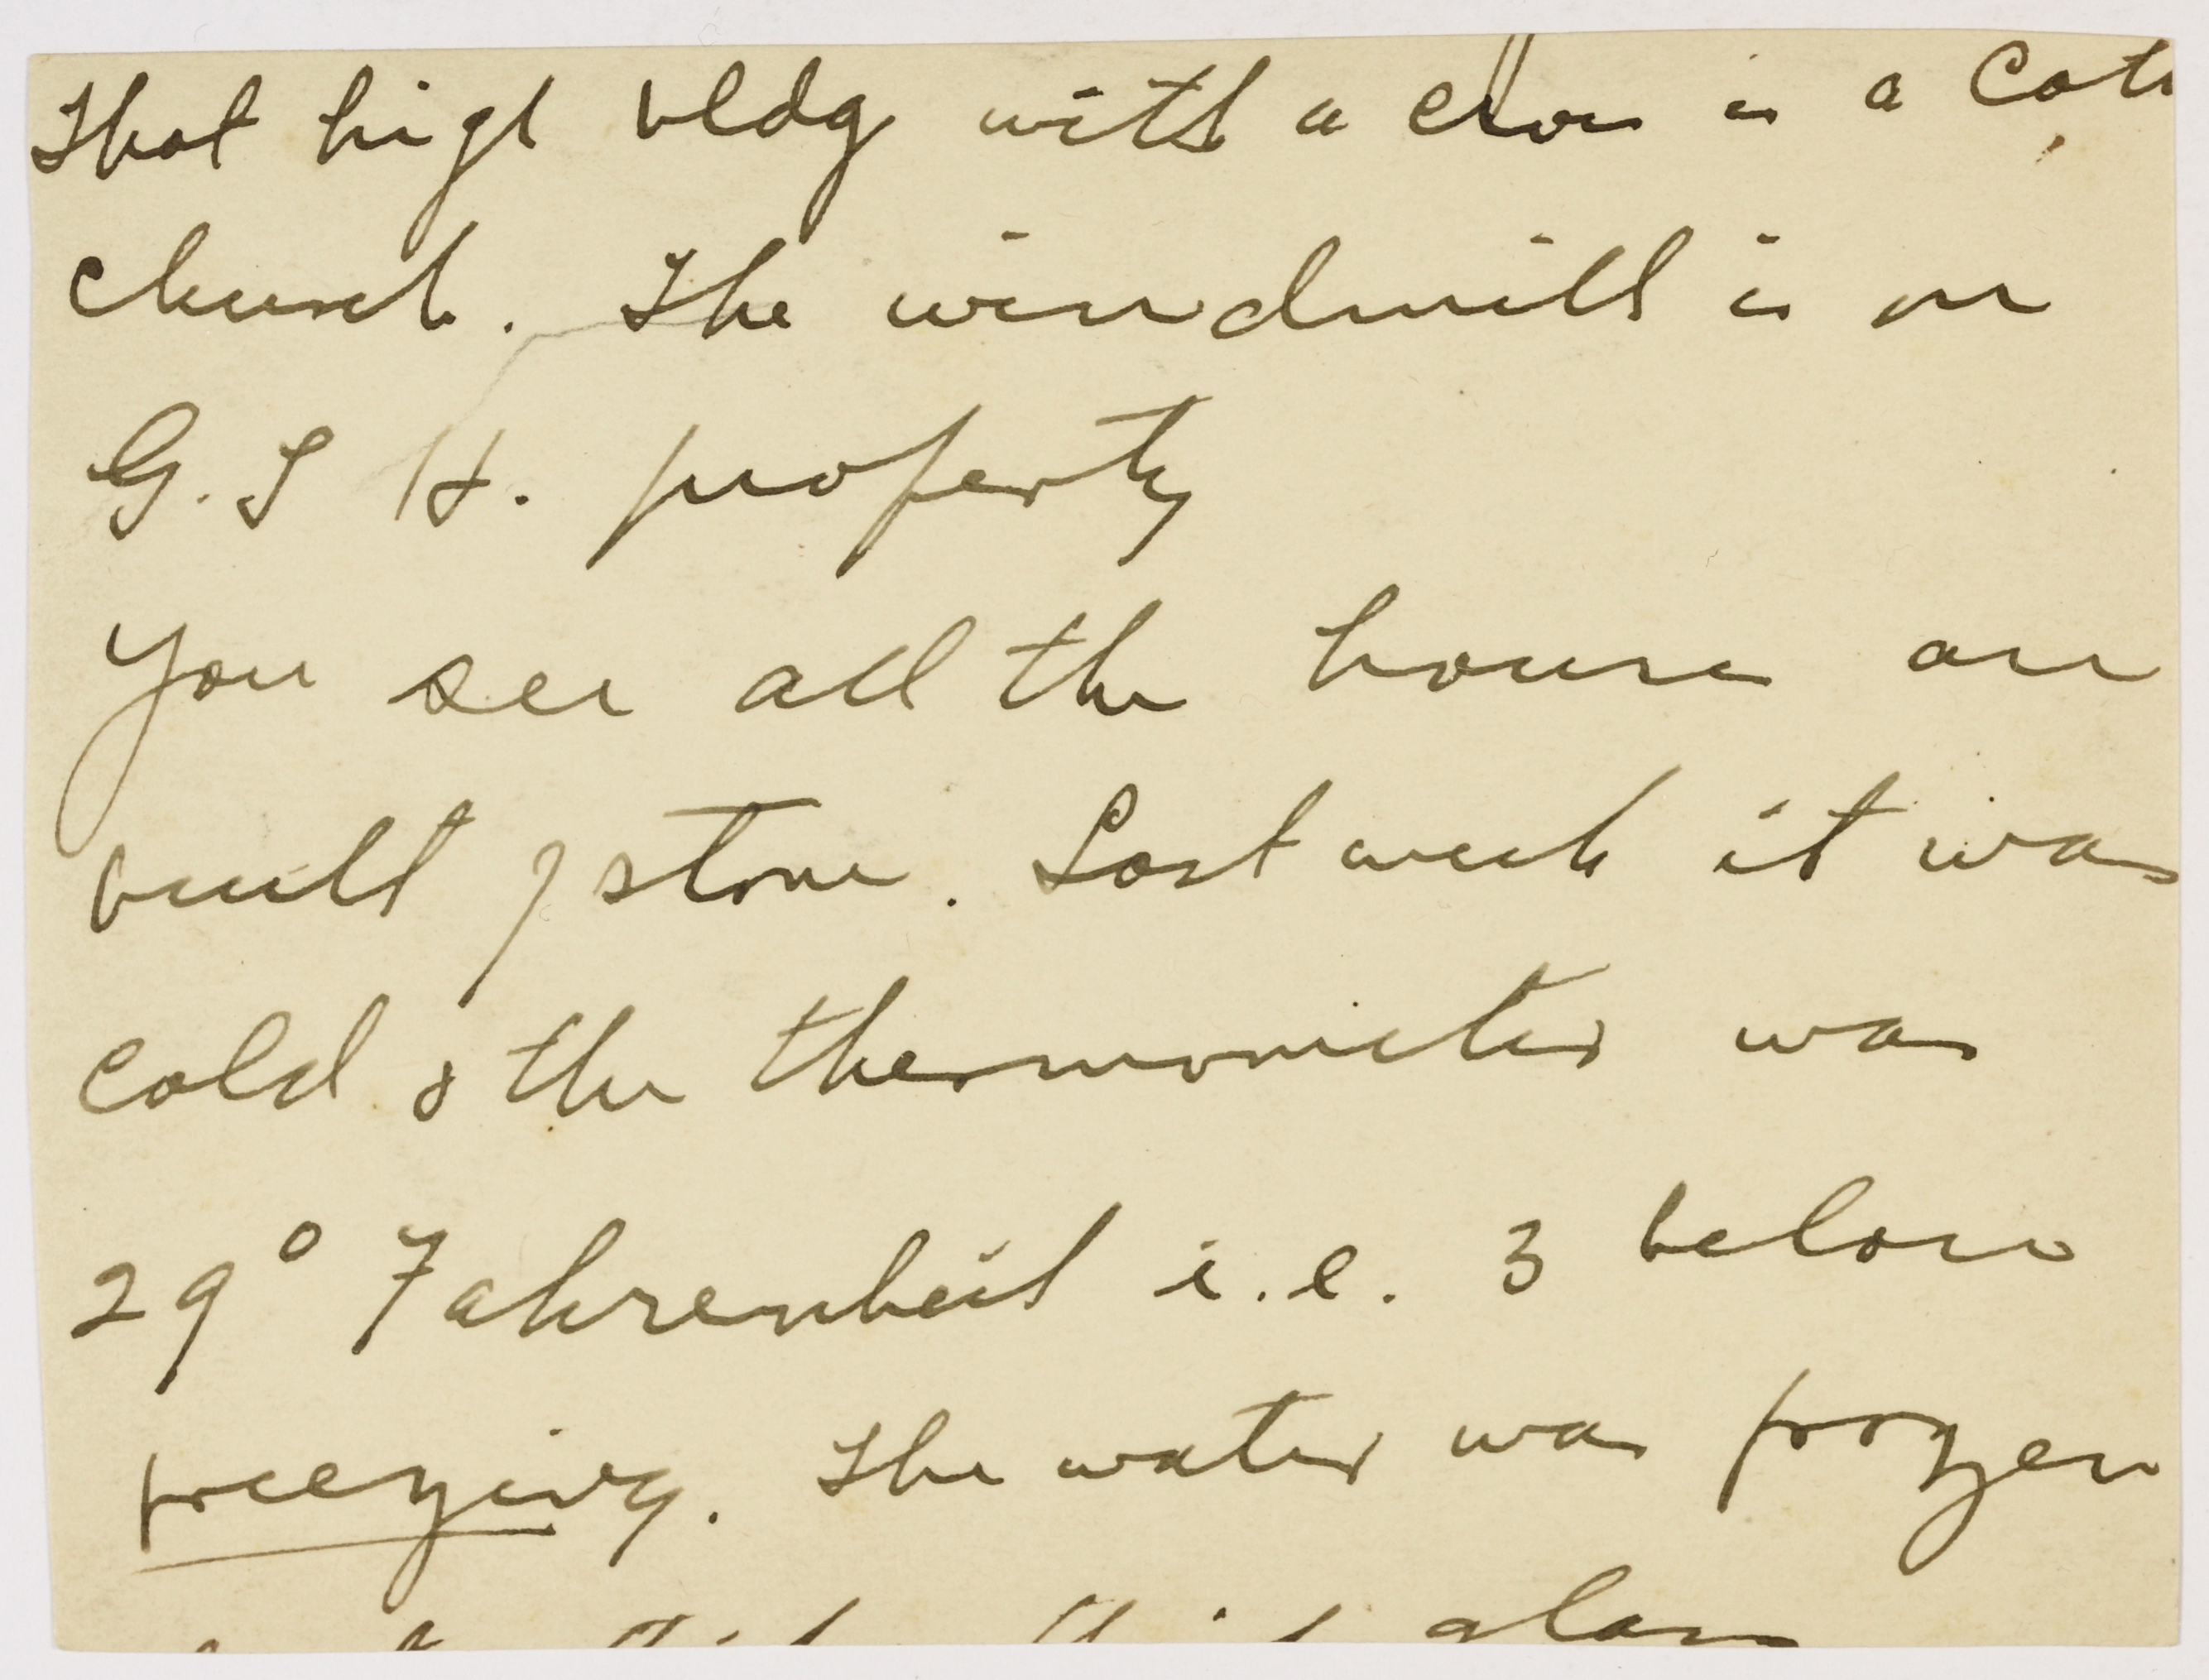 That high bldg with a cross is a Cath
church. The windmill is on
G. S H. property
You see all the houses are
built of stone. Last week it was
cold & the thermometer was
29° Fahrenheit i.e. 3 below
freezing. The water was frozen
glass